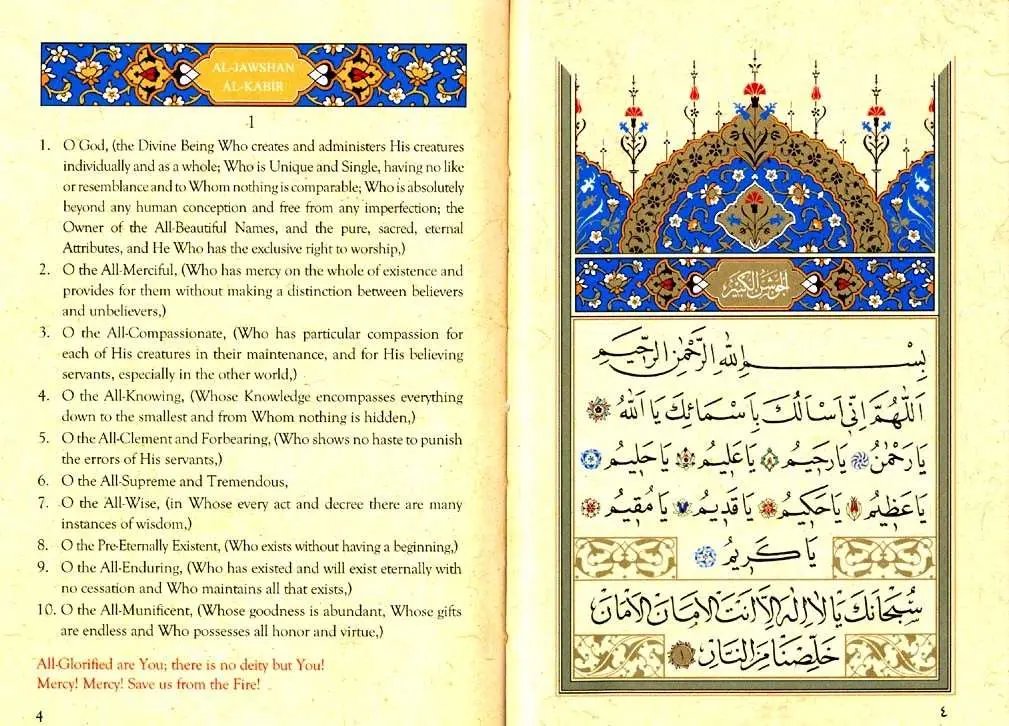 AL-JAWSHAN
AL-KABIR
1
1. O God, (the Divine Being Who creates and administers His creatures
individually and as a whole; Who is Unique and Single, having no like
or resemblance and to Whom nothing is comparable; Who is absolutely
beyond any human conception and free from any imperfection; the
Owner of the All-Beautiful Names, and the pure, sacred, eternal
Attributes, and He Who has the exclusive right to worship,)
2. O the All-Merciful, (Who has mercy on the whole of existence and
provides for them without making a distinction between believers
and unbelievers,)
3. O the All-Compassionate, (Who has particular compassion for
each of His creatures in their maintenance, and for His believing
servants, especially in the other world,)
4. O the All-Knowing, (Whose Knowledge encompasses everything
down to the smallest and from Whom nothing is hidden,)
5. O the All-Clement and Forbearing, (Who shows no haste to punish
the errors of His servants,)
6. O the All-Supreme and Tremendous,
7. O the All-Wise, (in Whose every act and decree there are many
instances of wisdom,)
8. O the Pre-Eternally Existent, (Who exists without having a beginning,)
9. O the All-Enduring, (Who has existed and will exist eternally with
no cessation and Who maintains all that exists,)
10. O the All-Munificent, (Whose goodness is abundant, Whose gifts
are endless and Who possesses all honor and virtue,)
All-Glorified are You; there is no deity but You!
Mercy! Mercy! Save us from the Fire!
4
الجوشن الكبير
بِسْمِ اللهِ الرَّحْمٰنِ الرَّحِيمِ
اَللّٰهُمَّ اِنِّى اَسْاَلُكَ بِاَسْمَائِكَ يَا اَللهُ
يَا رَحْمٰنُ يَا رَحِيمُ يَا عَلِيمُ يَا حَلِيمُ
يَا عَظِيمُ يَا حَكِيمُ يَا قَدِيمُ يَا مُقِيمُ
يَا كَرِيمُ
سُبْحَانَكَ يَا لَا اِلٰهَ اِلَّا اَنْتَ الْاَمَانَ الْاَمَانَ
خَلِّصْنَا مِنَ النَّارِ ١
٤